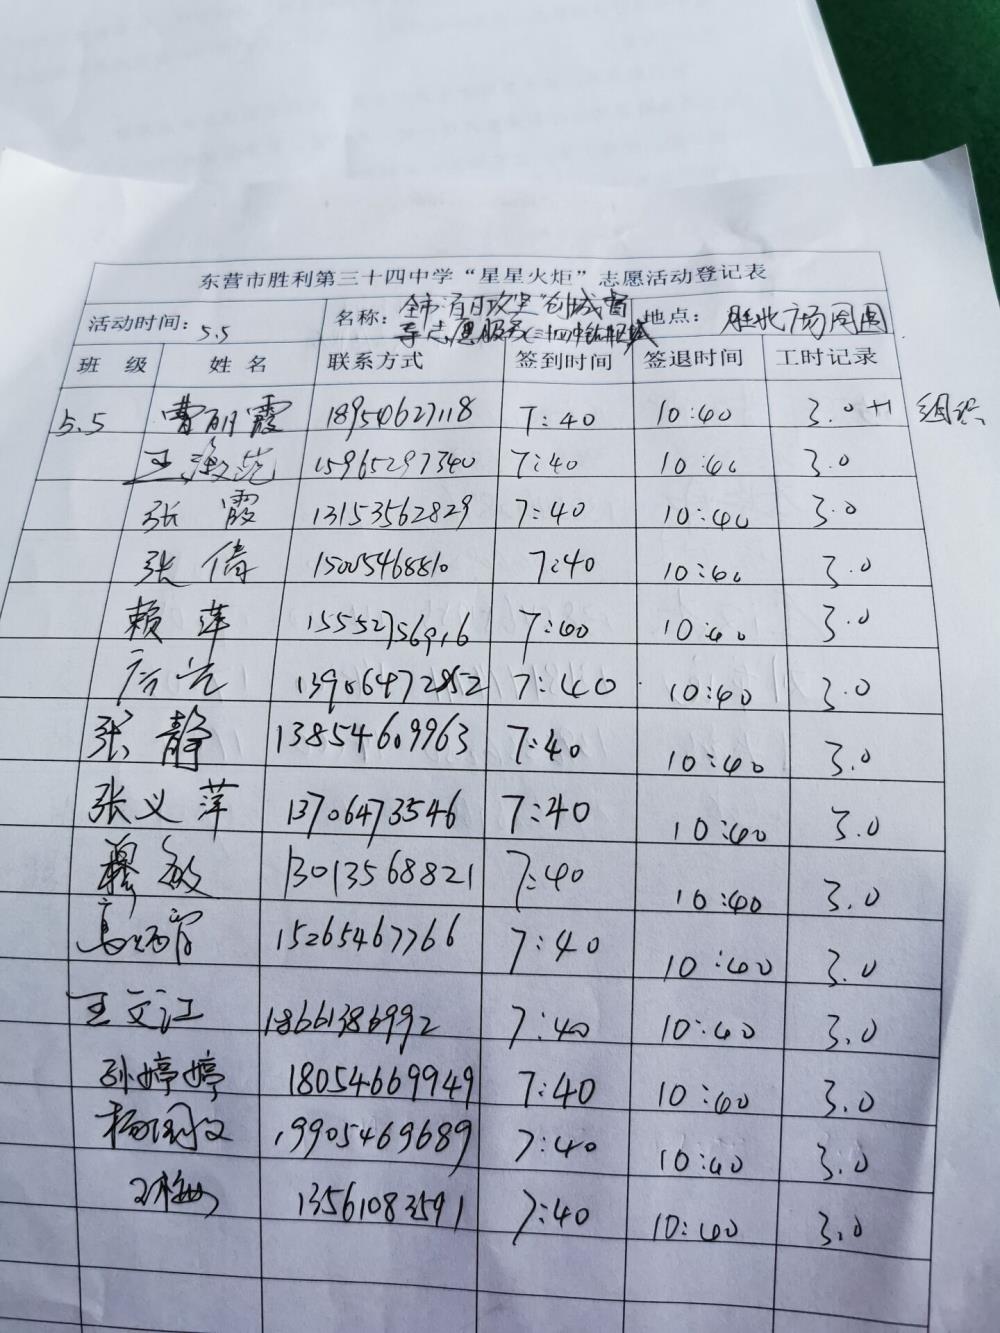 东营市胜利第三十四中学“星星火炬”志愿活动登记表
活动时间：5.5 名称：全市百日攻坚“创城督 地点：胜北广场周围
导志愿服务（三十四中
班 级 姓 名 联系方式 签到时间 签退时间 工时记录
5.5 曹丽霞 18954627118 7:40 10:40 3.0+1 组织
王 15965297340 7:40 10:40 3.0
张 霞 13153562829 7:40 10:40 3.0
张 倩 15005468810 7:40 10:40 3.0
赖 萍 15552756916 7:40 10:40 3.0
13906472852 7:40 10:40 3.0
张 静 13854609963 7:40 10:40 3.0
张义萍 13706473546 7:40 10:40 3.0
穆敏 13013568821 7:40 10:40 3.0
15265467766 7:40 10:40 3.0
王文江 18661386992 7:40 10:40 3.0
孙婷婷 18054669949 7:40 10:40 3.0
杨国文 19905469689 7:40 10:40 3.0
13561083591 7:40 10:40 3.0